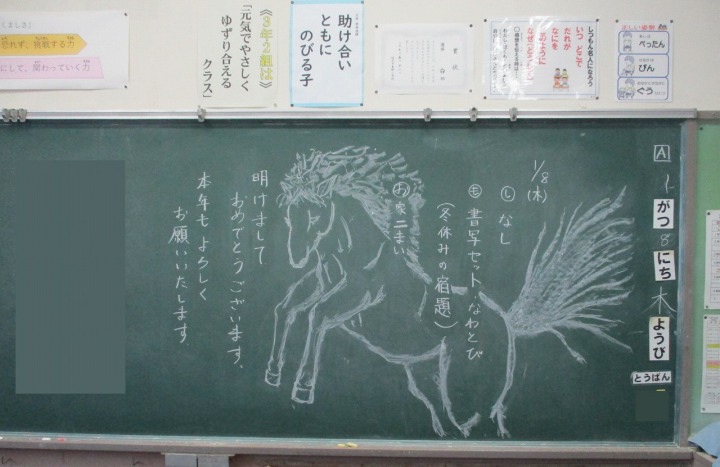 くましさ」
恐れず、挑戦する力
にして、関わっていく力
《3年2組は》
「元気でやさしく
ゆずり合える
クラス」
助け合い
ともに
のびる子
賞状
しつもん名人になろう
いつ どこで
だれが
なにを
どのように
なぜ(どうして)
正しい姿勢
ぺったん
ぴん
ぐう
A
1
がつ
8
にち
木
ようび
とうばん
1/8(木)
し なし
も 書写セット・なわとび
(冬休みの宿題)
お 家二まい
明けまして
おめでとうございます、
本年もよろしく
お願いいたします